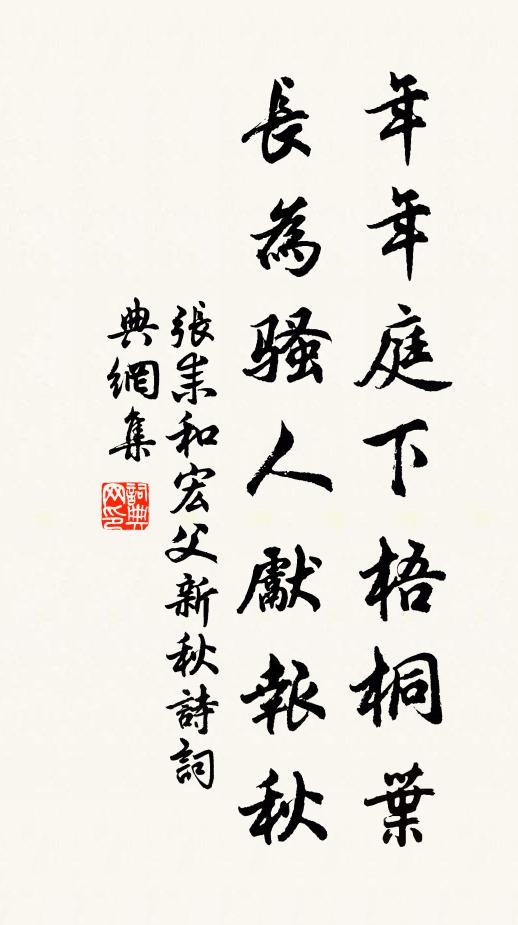 年年庭下梧桐葉
長為騷人獻報秋
張耒和宏父新秋詩詞
典網集
詞典网印